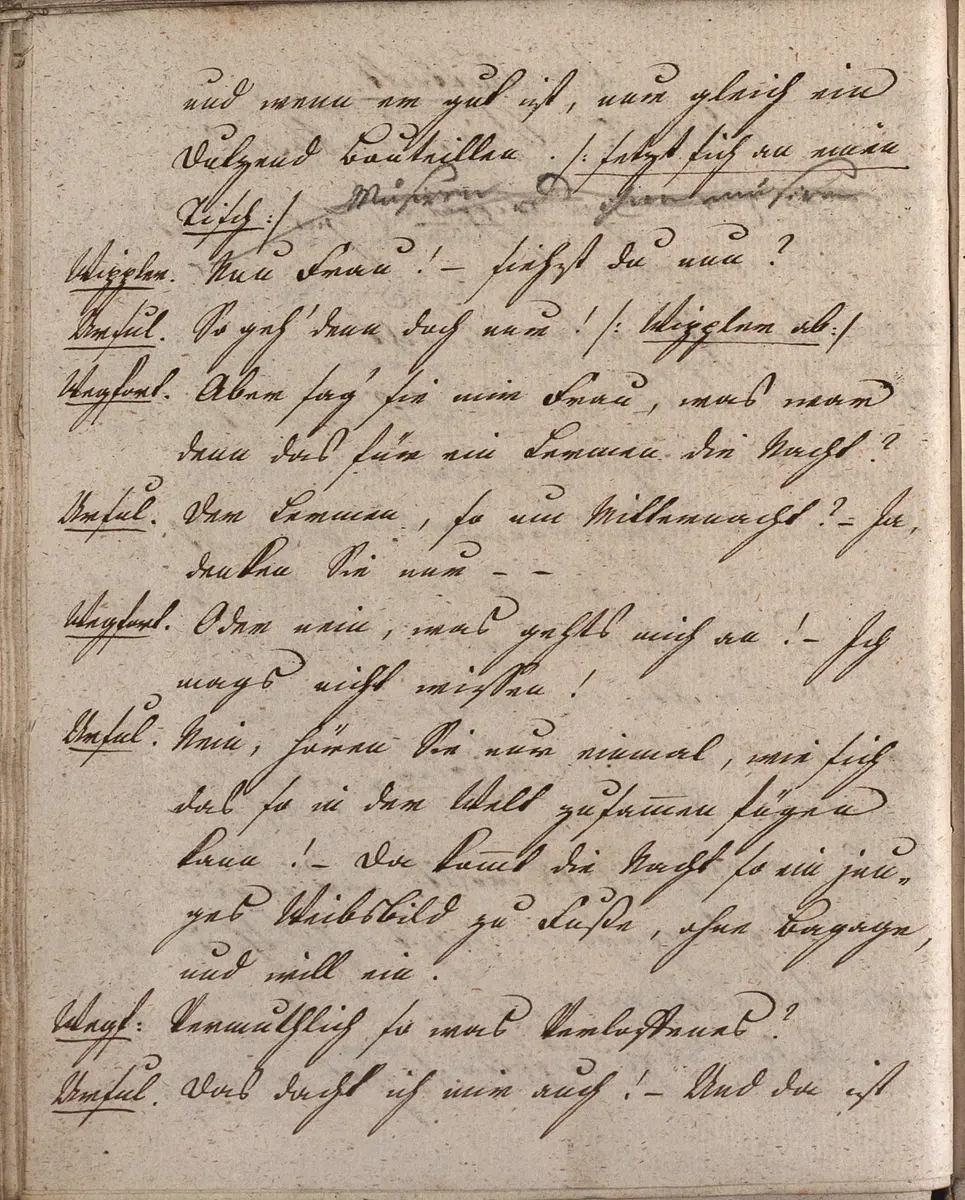 und wenn er gut ist, nur gleich ein
Dutzend Bouteillen. /: setzt sich an einen
Tisch :/
Wippler. Nun Frau! – siehst du nun?
Ursul. So geh' denn doch nur! /: Wippler ab :/
Wegfort. Aber sag' sie mir Frau, was war
denn das für ein Lermen die Nacht?
Ursul. Der Lermen, so um Mitternacht? – Ja,
denken Sie nur – –
Wegfort. Oder nein, was gehts mich an! – Ich
mags nicht wissen!
Ursul. Nein, hören Sie nur einmal, wie sich
das so in der Welt zusammen fügen
kann! – Da kommt die Nacht so ein jun„
ges Weibsbild zu Fuße, ohne Bagage,
und will ein.
Wegf: Vermuthlich so was Verloffenes?
Ursul. Das dacht' ich mir auch! – Und da ist